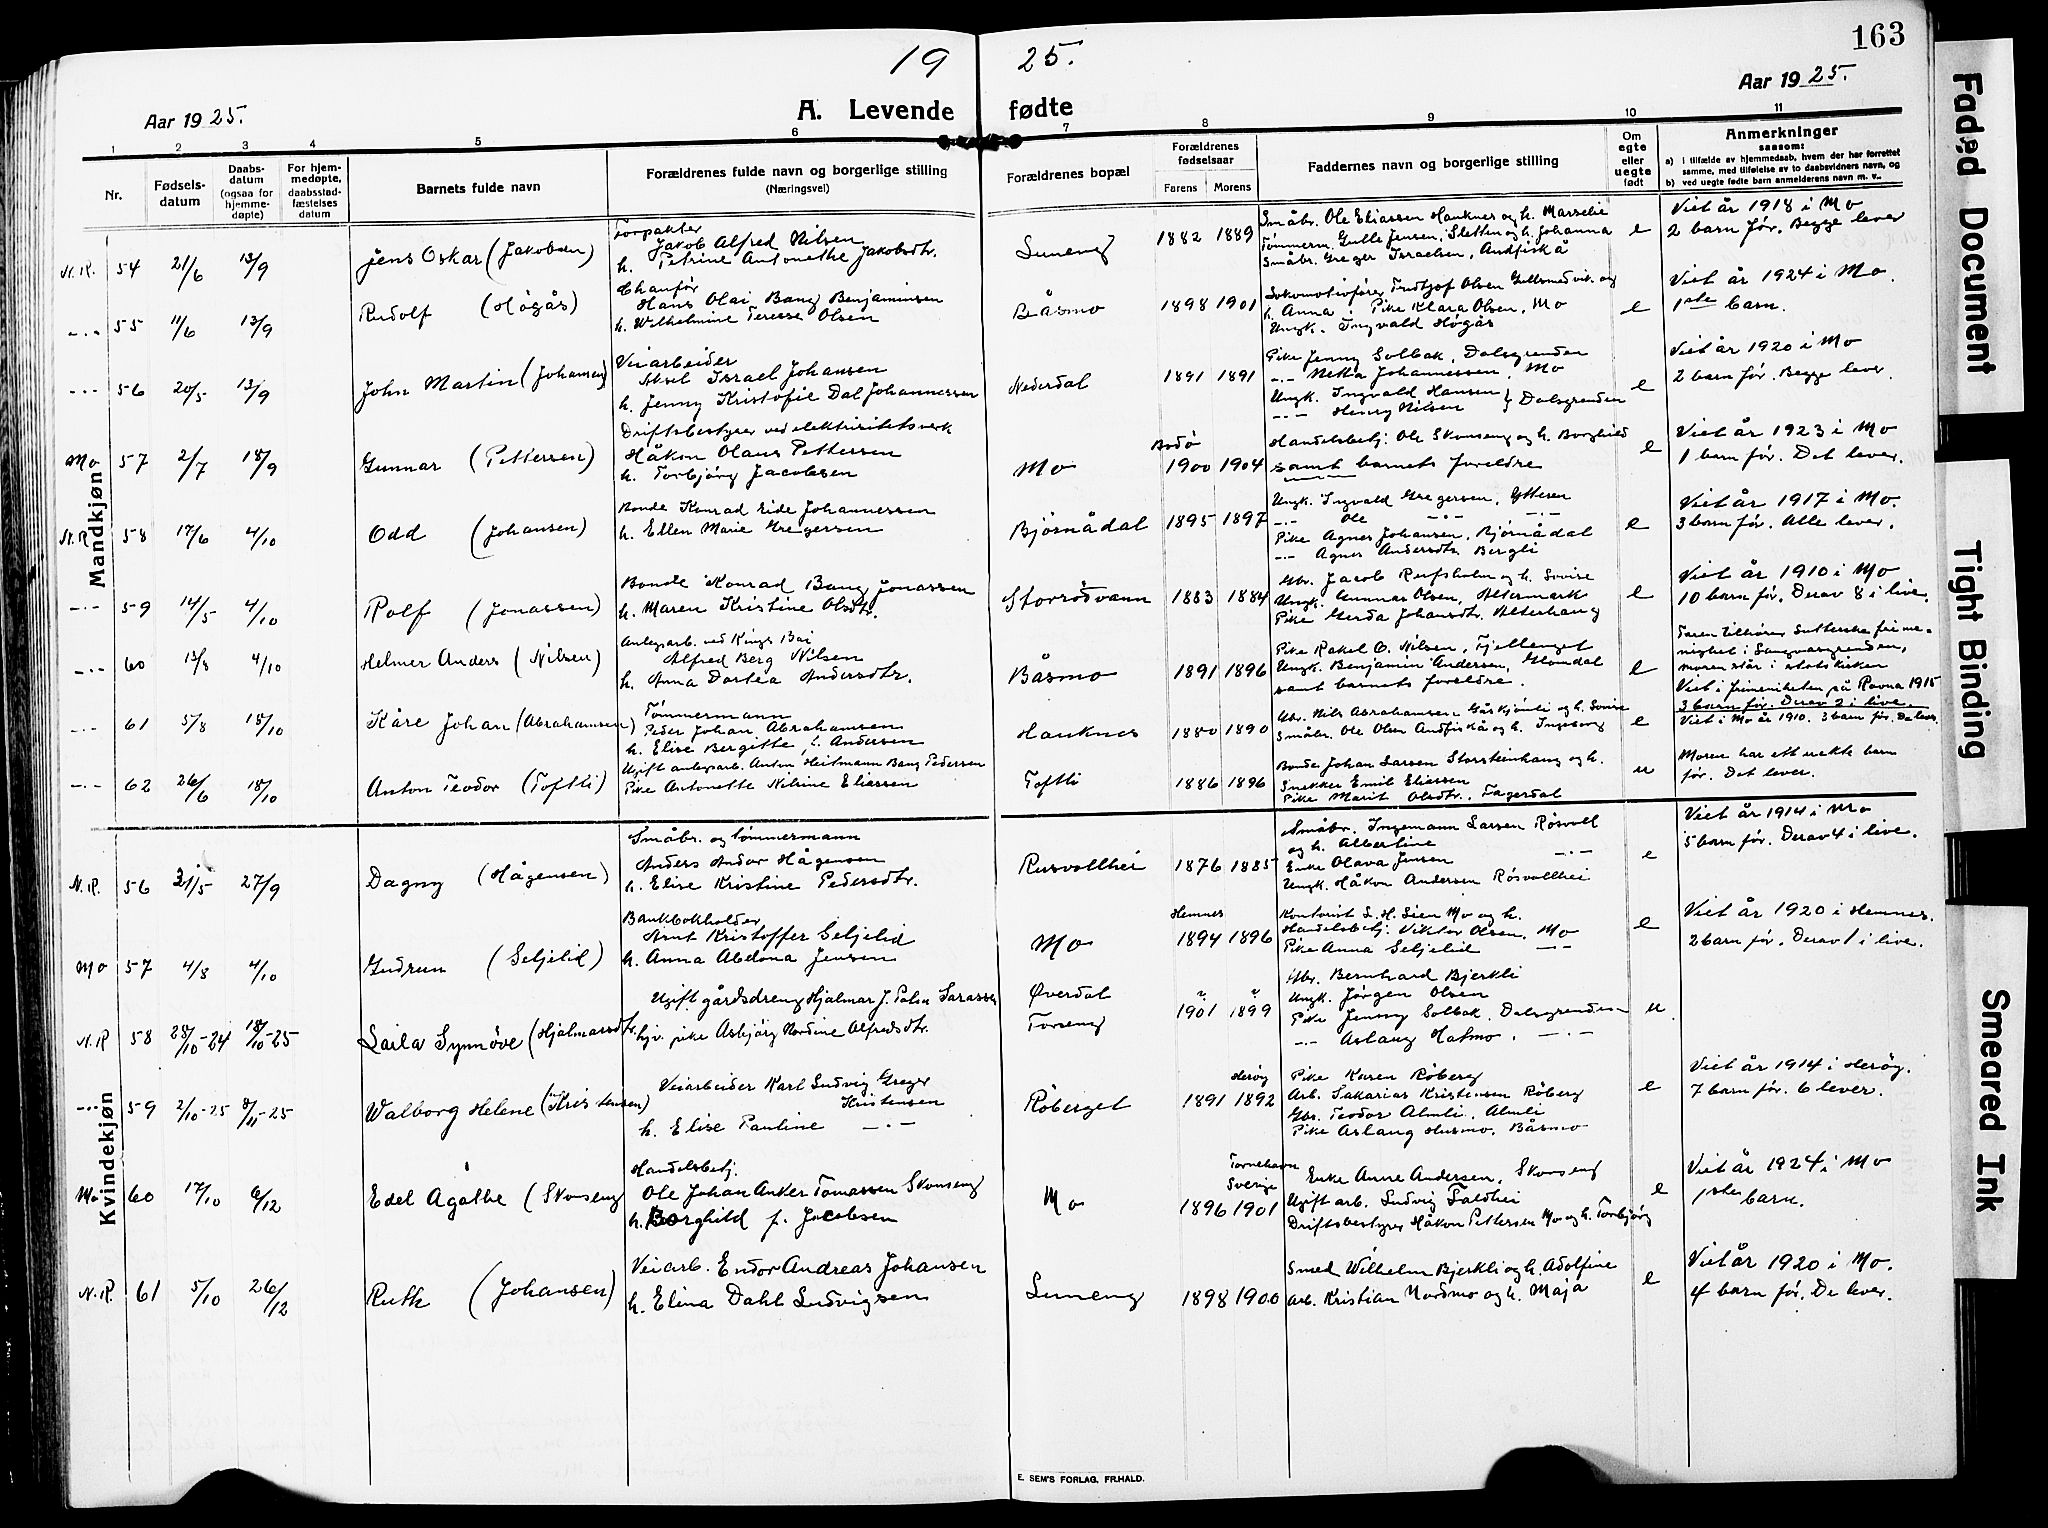 163
19 25.
Aar 1925.
A. Levende fødte
Aar 1925.
1 2 3 4 5 6 7 8 9 10 11
Nr.
Fødsels-
datum
Daabs-
datum
(ogsaa for
hjemme-
døpte)
For hjem-
medøpte,
daabsstad-
fæstelses
datum
Barnets fulde navn
Forældrenes fulde navn og borgerlige stilling
(Næringsvei)
Forældrenes bopæl
Forældrenes
fødselsaar
Farens Morens
Faddernes navn og borgerlige stilling
Om
egte
eller
uegte
født
Anmerkninger
saasom:
a) i tilfælde av hjemmedaab, hvem der har forrettet
samme, med tilføielse av to daabsvidners navn, og
b) ved uegte fødte barn anmelderens navn m. v..
Mandkjøn
N.R. 54 21/6 13/9 Jens Oskar (Jakobsen)
Forpakter
Jakob Alfred Nilsen
h. Petrine Antonethe Jakobsdtr.
Luneng 1882 1889
Småbr. Ole Eliassen Hauknes og h. Marselie
Tømmerm. Gulle Jensen, Sletten og h. Johanna
Småbr. Greger Israelsen, Andfiskå
e
Viet år 1918 i Mo
2 barn før. Begge lever
-.- 55 11/6 13/9 Rudolf (Høgås)
Chauför
Hans Olai Bang Benjaminsen
h. Wilhelmine Terese Olsen
Båsmo 1898 1901
Lokomotivfører Fridtjof Olsen Gullsmedvik og
h. Anna. Pike Klara Olsen, Mo
Ungk. Ingvald Høgås
e
Viet år 1924 i Mo.
1ste barn.
-.- 56 20/5 13/9 John Martin (Johansen)
Veiarbeider
Aksel Israel Johansen
h. Jenny Kristofie Dal Johannessen
Nederdal 1891 1891
Pike Jenny Solbak, Dalsgrenden
-.- Netta Johannessen, Mo
Ungk. Ingvald Hansen
-.- Henry Nilsen } Dalsgrenden
e
Viet år 1920 i Mo
2 barn før. Begge lever.
Mo 57 2/7 18/9 Gunnar (Pettersen)
Driftsbestyrer ved elektricitetsverk
Håkon Olaus Pettersen
h. Torbjørg Jacobsen
Mo
Bodø
1900 1904
Handelsbetj. Ole Skonseng og h. Borghild
samt barnets foreldre
e
Viet år 1923 i Mo
1 barn før. Det lever.
N.R. 58 17/6 4/10 Odd (Johansen)
Bonde Konrad Eide Johannessen
h. Ellen Marie Gregersen
Bjørnådal 1895 1897
Ungk. Ingvald Gregersen, Ytteren
-.- Ole -.- -.-
Pike Agnes Johansen, Bjørnådal
-.- Agnes Andersdtr. Bergli
e
Viet år 1917 i Mo.
3 barn før. Alle lever.
-.- 59 14/5 4/10 Rolf (Jonassen)
Bonde Konrad Bang Jonassen
h. Maren Kristine Olsdtr.
Storrødvann 1883 1884
Gbr. Jacob Rufsholm og h. Lovise
Ungk. Gunnar Olsen, Altermark
Pike Gerda Johansdtr. Alterhaug
e
Viet år 1910 i Mo
10 barn før. Derav 8 i live.
-.- 60 13/8 4/10 Helmer Anders (Nilsen)
Anlegsarb. ved Kings Bai
Alfred Berg Nilsen
h. Anna Dortea Andersdtr.
Båsmo 1891 1896
Pike Rakel O. Nilsen, Fjellenget
Ungk. Benjamin Andersen, Glomdal
samt barnets foreldre.
e
Faren tilhører Lutherske frime-
nighet i Langvasgrenden,
moren står i statskirken
Viet i frimenigheten på Ravna 1915
3 barn før. Derav 2 i live.
-.- 61 5/8 18/10 Kåre Johan (Abrahamsen)
Tømmermann
Peder Johan Abrahamsen
h. Elise Bergitte, f. Andersen
Hauknes 1880 1890
Gbr. Nils Abrahamsen Gåskjønli og h. Lovise
Småbr. Ole Olsen Andfiskå og h. Ingeborg
e
Viet i Mo år 1910. 3 barn før. De lever.
-.- 62 26/6 18/10 Anton Teodor (Toftli)
Ugift anlegsarb. Anton Heitmann Bang Pedersen
Pike Antonette Nikrine Eliassen
Toftli 1886 1896
Bonde Johan Larsen Storsteinhaug og h.
Snekker Emil Eliassen
Pike Marit Olsdtr. Fagerdal
u
Moren har ett uekte barn
før. Det lever.
Kvindekjøn
N.R. 56 31/5 27/9 Dagny (Hågensen)
Småbr. og tømmermann
Anders Andor Hågensen
h. Elise Kristine Pedersdtr.
Rusvollhei 1876 1885
Småbr. Ingemann Larsen Røsvoll
og h. Albertine
Enke Olava Jensen -.-
Ungk. Håkon Andersen Røsvollhei
e
Viet år 1914 i Mo
5 barn før. Derav 4 i live.
Mo 57 4/8 4/10 Gudrun (Seljelid)
Bankbokholder
Arnt Kristoffer Seljelid
h. Anna Abdona Jensen
Mo
Hemnes
1894 1896
Kontorist L. H. Lien Mo og h.
Handelsbetj. Viktor Olsen, Mo
Pike Anna Seljelid -.-
e
Viet år 1920 i Hemnes.
2 barn før. Derav 1 i live.
N.R. 58 28/10-24 18/10-25 Laila Synnöve (Hjalmarsdtr.
Ugift gårdsdreng Hjalmar J. Palm Larassen
hjv. pike Asbjørg Nordine Alfredsdtr.
Øverdal
Forseng
1901 1899
Gbr. Bernhard Bjerkli
Ungk. Jørgen Olsen
Pike Jenny Solbak, Dalsgrenden
-.- Aslaug Hatmo. -.-
u.
-.- 59 2/10-25 8/11-25 Walborg Helene (Kristensen)
Veiarbeider Karl Ludvig Greger
Kristensen
h. Elise Pauline -.-
Røberget
Herøy
1891 1892
Pike Karen Røberg
Arb. Sakarias Kristensen Røberg
Gbr. Teodor Almli, Almli
Pike Aslaug Husmo, Båsmo
e
Viet år 1914 i Herøy.
7 barn før. 6 lever.
Mo 60 17/10 6/12 Edel Agathe (Skonseng
Handelsbetj.
Ole Johan Anker Tomassen Skonseng
h. Borghild f. Jacobsen
Mo
Tornehavn
Sverige
1896 1901
Enke Anne Andersen, Skonseng
Ugift arb. Ludvig Faldhei
Driftsbestyrer Håkon Pettersen Mo og h. Torbjørg
e
Viet år 1924 i Mo
1ste barn.
N.R. 61 5/10 26/12 Ruth (Johansen)
Veiarb. Endor Andreas Johansen
h. Elina Dahl Ludvigsen
Luneng 1898 1900
Smed Wilhelm Bjerkli og h. Adolfine
Arb. Kristian Nordmo og h. Maja
e
Viet år 1920 i Mo.
4 barn før. De lever.
E. SEM'S FORLAG, FR.HALD.
Faded Document
Tight Binding
Smeared Ink